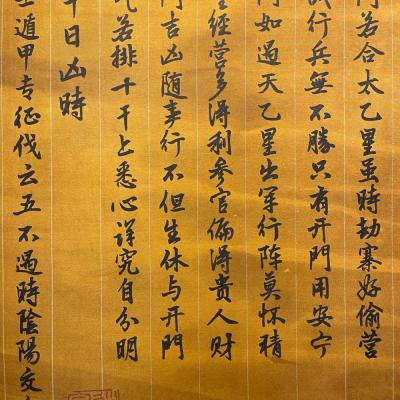 若合太乙星虽時劫寨好偷营
行兵無不勝只有开門用安宁
如遇天乙星出军行阵莫怀猜
經营多得利参官偏得貴人财
吉凶随事行不但生休与开門
若排十干上悉心详究自分明
日凶時
遁甲专征伐云五不遇時陰陽交